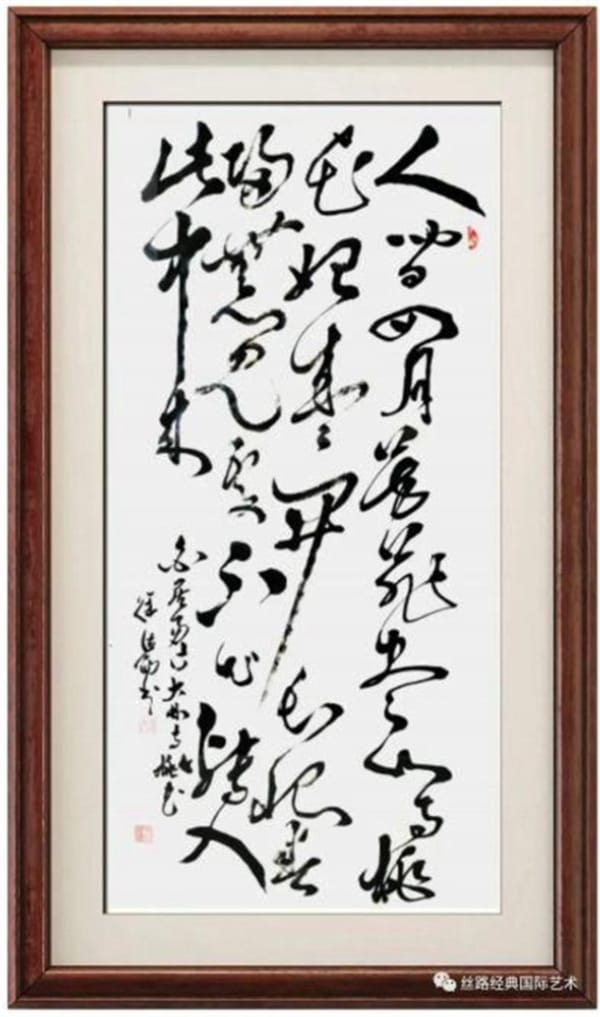 人间四月芳菲尽山寺桃
花始盛开长恨春
归无觅处不知转入
此中来
白居易诗大林寺桃花
书
丝路经典国际艺术